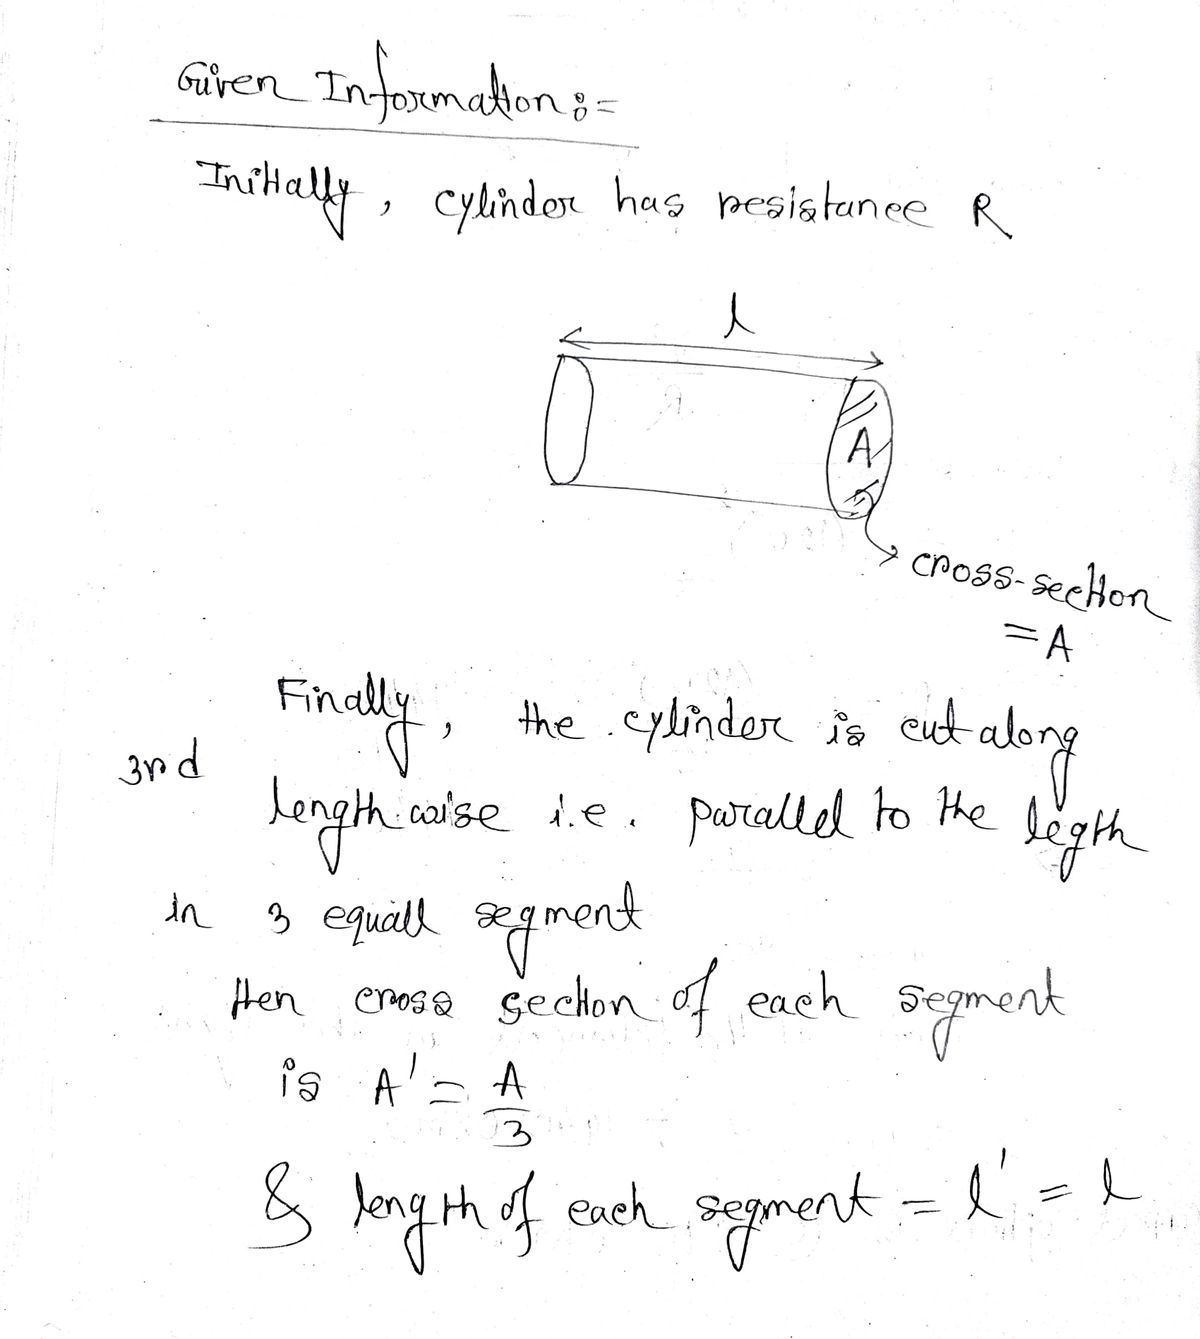 Given Information :=
Initially, cylinder has resistance R
l
A
cross-section
= A
Finally, the cylinder is cut along
3rd
length wise i.e. parallel to the legth
in 3 equall segment
then cross section of each segment
is A' = A/3
& length of each segment = l' = l